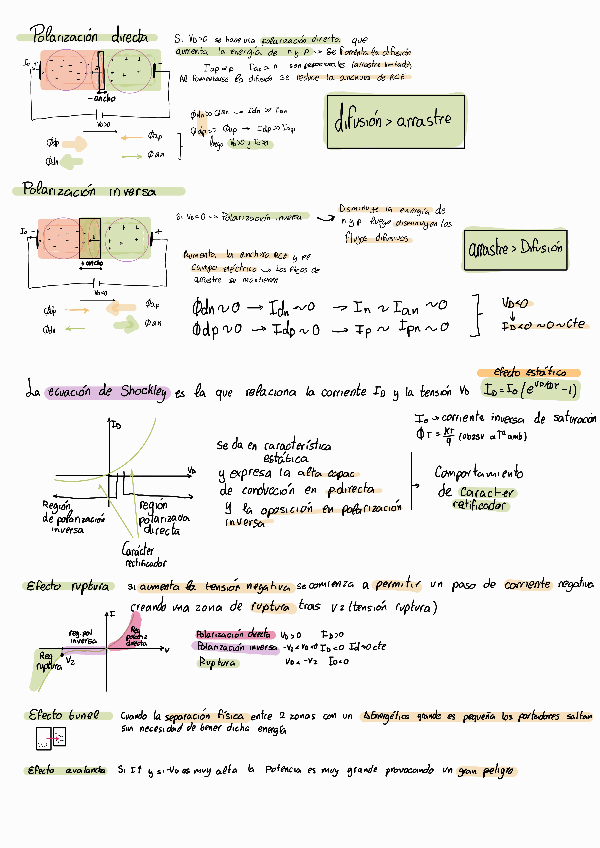 Polarización directa
Si VD>0 se hace una polarización directa que
aumenta la energía de n y p → Se fomenta la difusión
Al fomentarse la difusión se reduce la anchura de RCE
- ancho
VD>0
Φdp
Φdn
Φap
Φan
Φdn >> Φan → Idn >> Ian
Φdp >> Φap → Idp >> Iap
luego
difusión > arrastre
Polarización inversa
Si VD<0 → Polarización inversa
Disminuye la energía de
n y p luego disminuyen los
flujos difusivos
Aumenta la anchura RCE y el
campo eléctrico → los flujos de
arrastre se mantienen
+ ancho
VD<0
Φdp
Φdn
Φap
Φan
arrastre > Difusión
Φdn ~ 0 → Idn ~ 0 → In ~ Ian ~ 0
Φdp ~ 0 → Idp ~ 0 → Ip ~ Ipn ~ 0
VD<0
↓
ID<0 ~ 0 ~ cte
Efecto estático
La ecuación de Shockley es la que relaciona la corriente ID y la tensión VD
I0 → corriente inversa de saturación
ΦT = KT/q (0.025V a Tª amb)
ID
VD
Región de polarización inversa
región polarizada directa
Carácter rectificador
Se da en característica
estática
y expresa la alta capac
de conducción en p.directa
y la oposición en polarización
inversa
Comportamiento
de caracter
retificador
Efecto ruptura Si aumenta la tensión negativa se comienza a permitir un paso de corriente negativa
creando una zona de ruptura tras Vz (tensión ruptura)
I
V
reg. pol inversa
Reg polariz directa
Reg ruptura
Vz
Polarización directa VD>0 ID>0
Polarización inversa -Vz<VD<0 ID<0 Id≈0 cte
Ruptura VD<-Vz ID<0
Efecto tunel Cuando la separación física entre 2 zonas con un ΔEnergético grande es pequeña los portadores saltan
sin necesidad de tener dicha energía
Efecto avalancha Si I↑ y si -VD es muy alta la Potencia es muy grande provocando un gran peligro